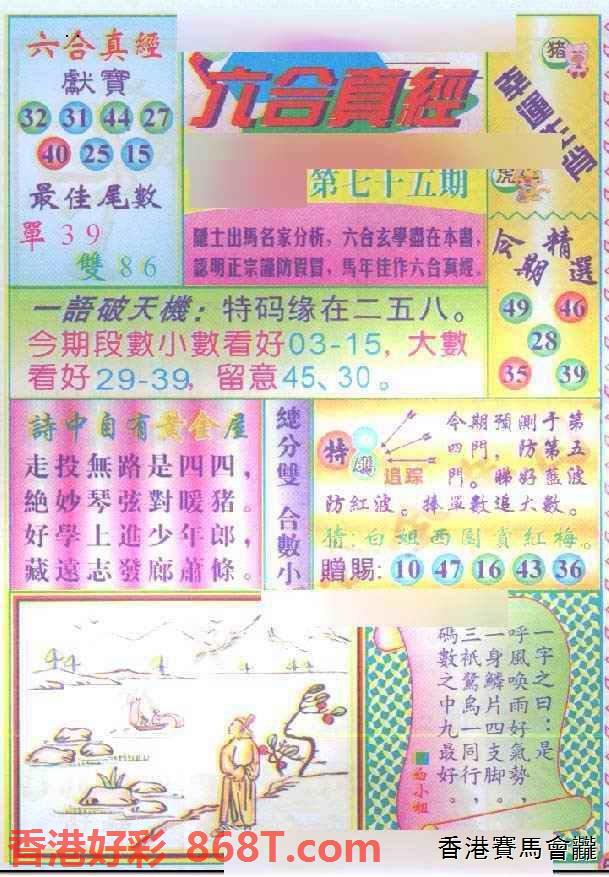 六合真經
獻寶
32 31 44 27
40 25 15
最佳尾數
單 3 9
雙 8 6
六合真經
第七十五期
隱士出馬名家分析，六合玄學盡在本書，
認明正宗謹防假冒，馬年佳作六合真經。
猪
虎
今期精選
49 46
28
35 39
一語破天機：特码缘在二五八。
今期段數小數看好03-15，大數
看好29-39，留意45、30。
詩中自有黃金屋
走投無路是四四，
絶妙琴弦對暖猪。
好學上進少年郎，
藏遠志發廊蕭條。
總分雙 合數小
特碼
追踪
今期預測于第
四門，防第五
門。睇好藍波
防紅波。捧單數追大數。
猜：白姐西園賞紅梅。
贈賜：10 47 16 43 36
一字之曰：是
呼風喚雨好氣勢，
一身鱗片四支脚。
三祇鴛鳥一同行，
碼數之中九最好。
香港好彩 868T.com
香港賽馬會